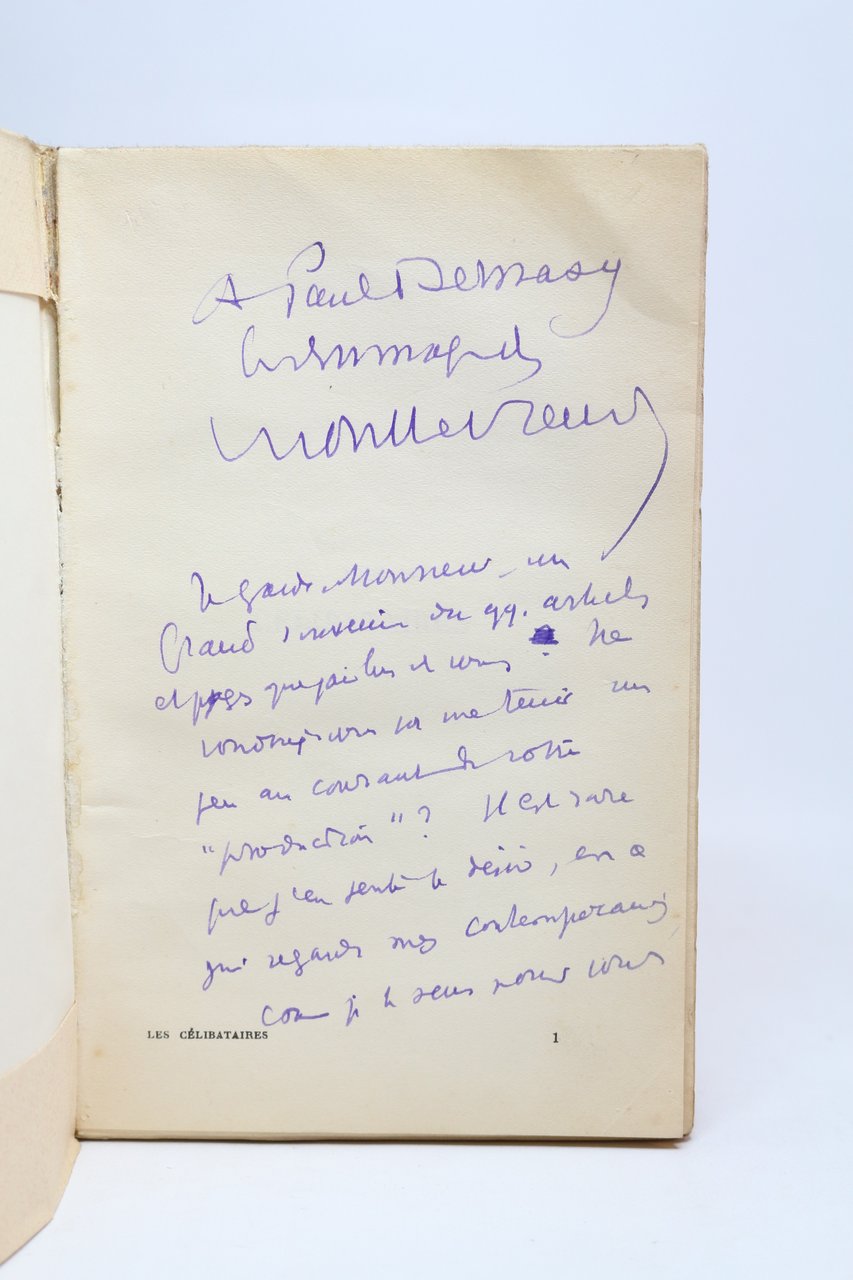 A Paul Demasy
hommage de
Montherlant
Je garde, Monsieur, un
grand souvenir de qq. articles
et pages que j'ai lus de vous. Ne
voudriez-vous pas me tenir un
peu au courant de votre
"production" ? Il est rare
que j'en sente le désir, en ce
qui regarde mes contemporains,
comme je le sens pour vous
LES CÉLIBATAIRES 1